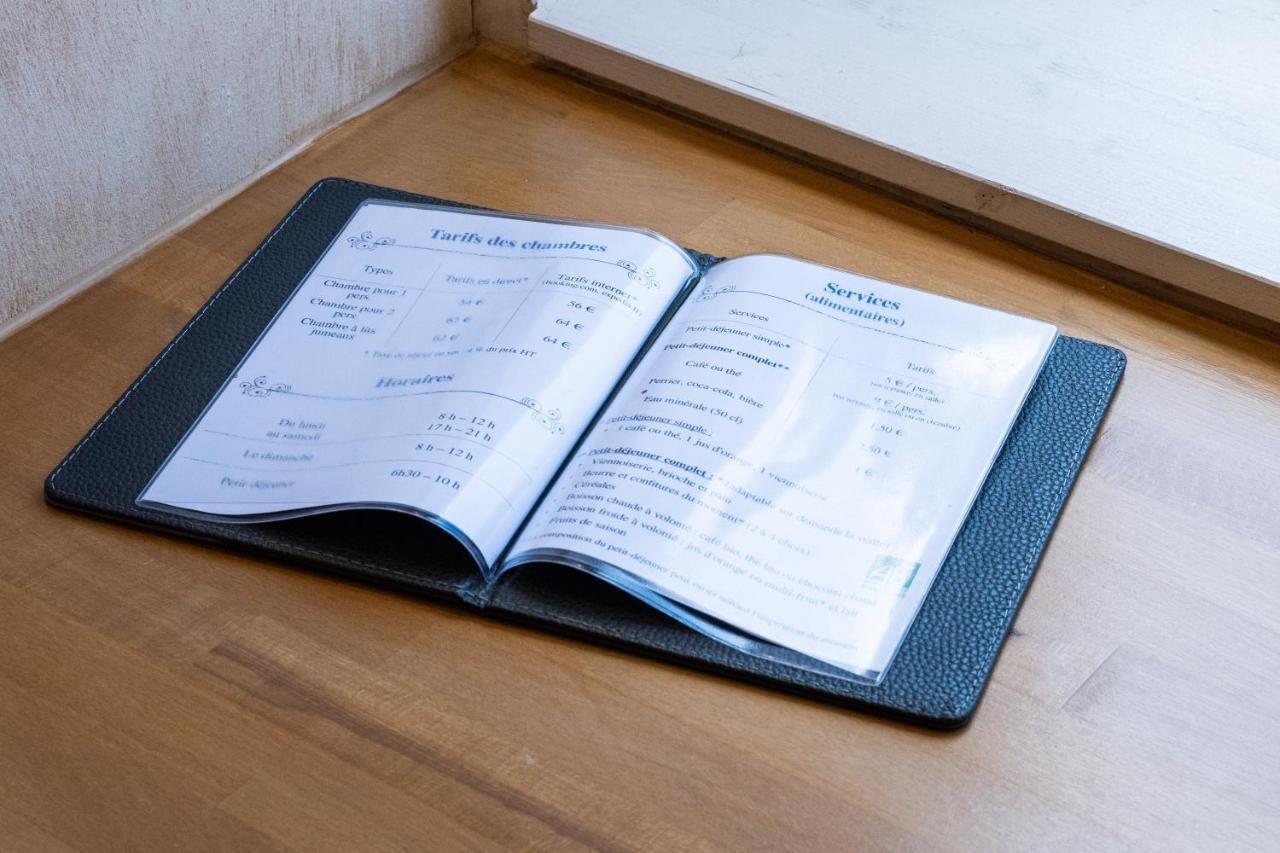 Tarifs des chambres
Types
Tarifs en direct*
Tarifs internet*
(booking.com, expedia.fr)
Chambre pour 1
pers.
54 €
56 €
Chambre pour 2
pers
62 €
64 €
Chambre à lits
jumeaux
62 €
64 €
* Taxe de séjour en sus : 4 % du prix HT
Horaires
Du lundi
au samedi
8 h – 12 h
17 h – 21 h
Le dimanche
8 h – 12 h
Petit-déjeuner
6h30 – 10 h
Services
(alimentaires)
Services
Tarifs
Petit-déjeuner simple*
5 € / pers.
(en terrasse, en salle)
Petit-déjeuner complet**
9 € / pers.
(en terrasse, en salle ou en chambre)
Café ou thé
1.50 €
Perrier, coca-cola, bière
2.50 €
Eau minérale (50 cl)
1 €
* Petit-déjeuner simple :
1 café ou thé, 1 jus d'orange, 1 viennoiserie
Petit-déjeuner complet : * (adaptable sur demande la veille)
Viennoiserie, brioche et pain
Beurre et confitures du moment* (2 à 4 choix)
Céréales
Boisson chaude à volonté : café bio, thé bio ou chocolat chaud
Boisson froide à volonté : jus d'orange ou multi-fruit* et lait
Fruits de saison
composition du petit-déjeuner peut varier suivant l'inspiration du moment